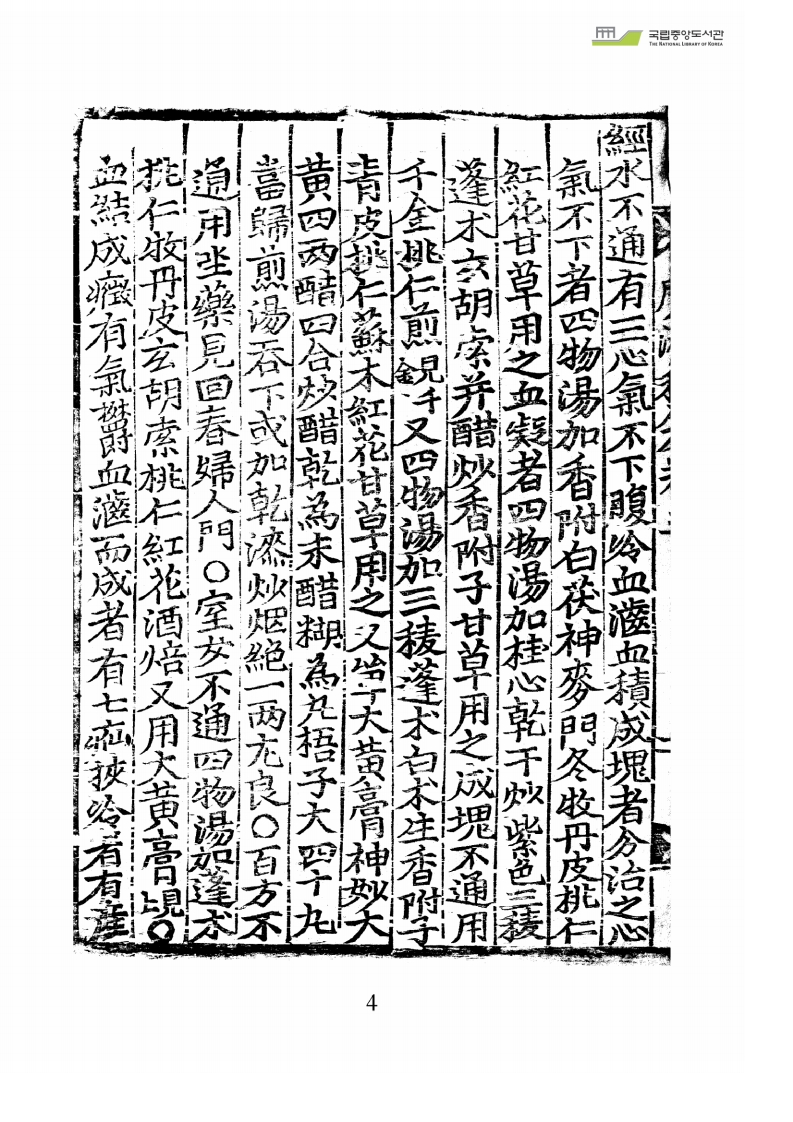 국립중앙도서관
THE NATIONAL LIBRARY OF KOREA
經水不通有三心氣不下腹冷血澁血積成塊者分治之心
氣不下者四物湯加香附白茯神麥門冬牧丹皮桃仁
紅花甘草用之血凝者四物湯加桂心乾干炒紫色三稜
蓬朮玄胡索并醋炒香附子甘草用之成塊不通用
千金桃仁煎見千金又四物湯加三稜蓬朮白朮生香附子
青皮桃仁蘇木紅花甘草用之又大黃膏神妙大
黃四兩醋四合炒醋乾爲末醋糊爲丸梧子大四十丸
當歸煎湯吞下或加乾漆炒烟絶一兩尤良○百方不
通用坐藥見回春婦人門○室女不通四物湯加蓬朮
桃仁牧丹皮玄胡索桃仁紅花酒焙又用大黃膏○
血結成癥有氣欝血澁而成者有七疝挾冷者有産
4